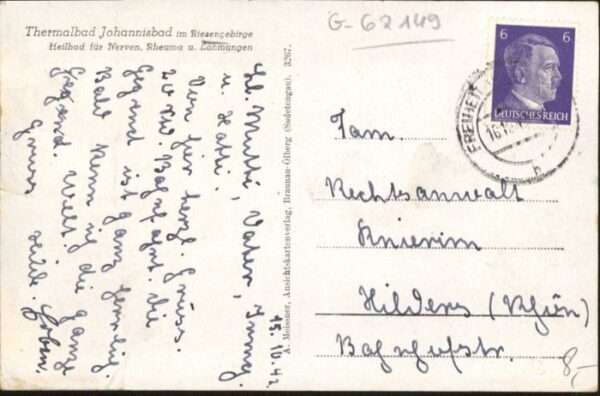 Thermalbad Johannisbad im Riesengebirge
Heilbad für Nerven, Rheuma u. Lähmungen
G-62149
6 6
DEUTSCHES REICH
FREIHEIT
b
Lb. Mutti, Vater,
u.
Von hier herzl. Grüsse.
Die
Gegend ist ganz herrlich.
Bald kenn ich die ganze
Gegend.
Gruss
15.10.42
A. Meissner, Ansichtskartenverlag, Braunau-Ölberg (Sudetengau). 3267.
Fam.
Rechtsanwalt
Knierim
Hilders (Rhön)
Bahnhofstr.
8,-